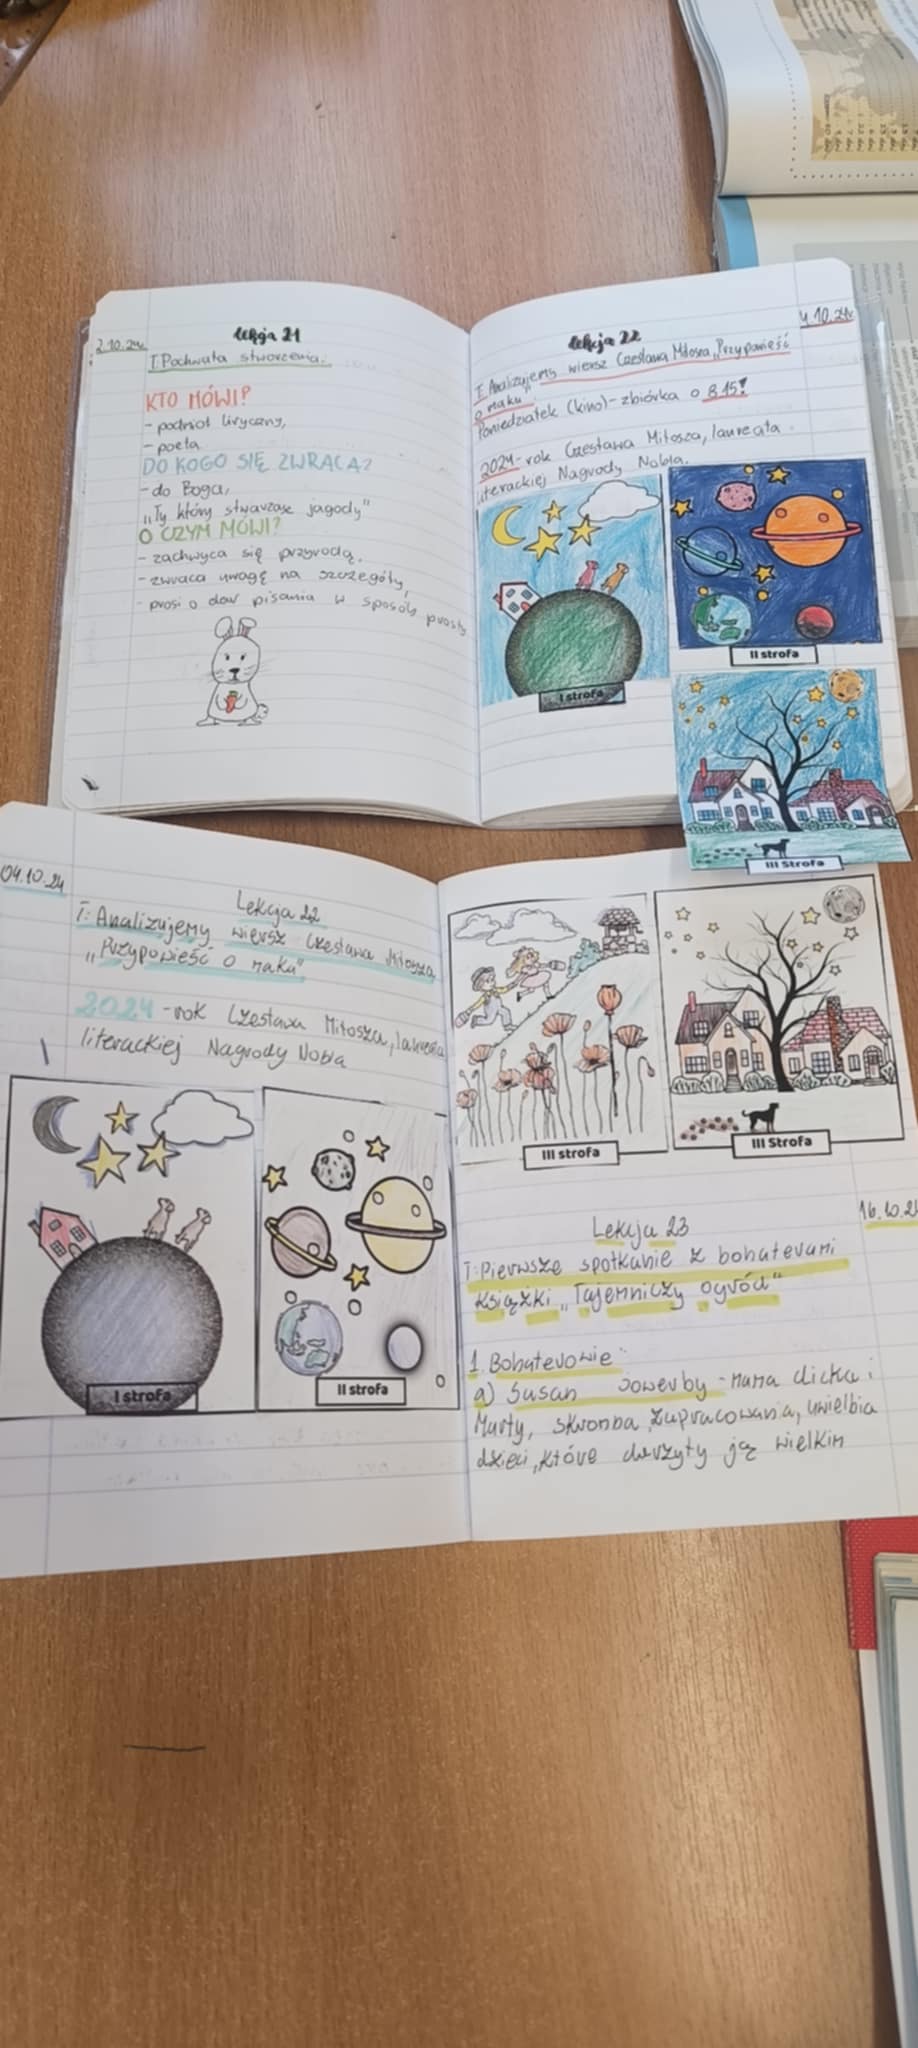 2.10.24r
lekcja 21
T: Pochwała stworzenia.
KTO MÓWI?
- podmiot liryczny,
- poeta
DO KOGO SIĘ ZWRACA?
- do Boga,
"Ty który stwarzasz jagody"
O CZYM MÓWI?
- zachwyca się przyrodą,
- zwraca uwagę na szczegóły,
- prosi o dar pisania w sposób prosty
lekcja 22
4.10.24r
T: Analizujemy wiersz Czesława Miłosza „Przypowieść
o maku"
Poniedziałek (kino) - zbiórka o 8.15!
2024 - rok Czesława Miłosza, laureata
literackiej Nagrody Nobla.
I strofa
II strofa
III Strofa
04.10.24
Lekcja 22
T: Analizujemy wiersz Czesława Miłosza
„Przypowieść o maku"
2024 - rok Czesława Miłosza, laureata
literackiej Nagrody Nobla
I strofa
II strofa
III strofa
III Strofa
Lekcja 23
16.10.2
T: Pierwsze spotkanie z bohaterami
książki „Tajemniczy ogród"
1. Bohaterowie:
a) Susan Sowerby - mama Dicka i
Marty, skromna, zapracowana, uwielbia
dzieci, które darzyły ją wielkim